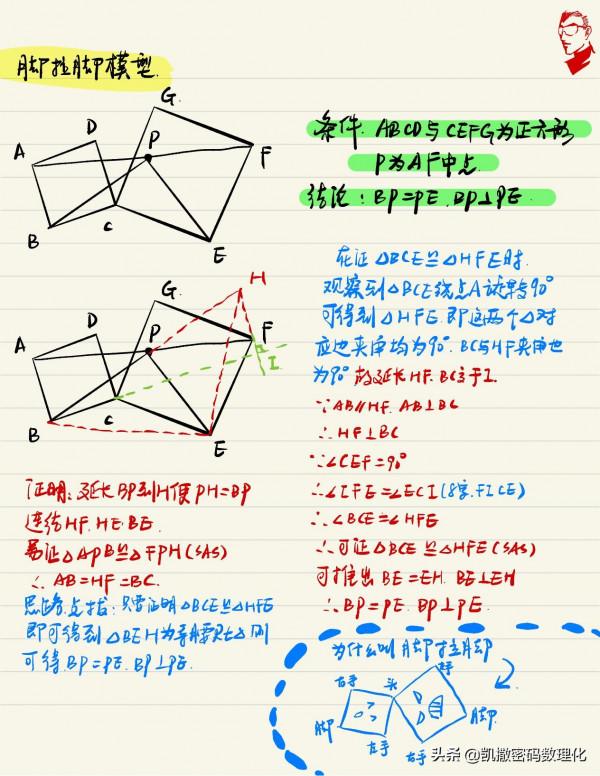 脚拉脚模型.
条件. ABCD与CEFG为正方形
P为AF中点.
结论: BP=PE. BP⊥PE.
G
D
P
A
F
B
C
E
在证△BCE≌△HFE时.
观察到△BCE绕点A旋转90°
可得到△HFE. 即这两个△对
应边夹角均为90°. BC与HF夹角也
为90° 故延长HF. BC交于I.
∵AB∥HF. AB⊥BC
∴HF⊥BC
∵∠CEF=90°
∴∠IFE=∠ECI(8字.FICE)
∴∠BCE=∠HFE
∴可证△BCE≌△HFE(SAS)
可推出BE=EH. BE⊥EH
∴BP=PE. BP⊥PE.
H
G
D
P
A
F
I
B
C
E
证明: 延长BP到H使PH=BP
连结HF. HE. BE.
易证△APB≌△FPH(SAS)
∴AB=HF=BC.
思路点拨: 只需证明△BCE≌△HFE
即可得到△BEH为等腰Rt△则
可得.BP=PE. BP⊥PE.
为什么叫脚拉脚
右手
头
左手
脚
脚
左手
右手
头条 @凯撒密码数理化